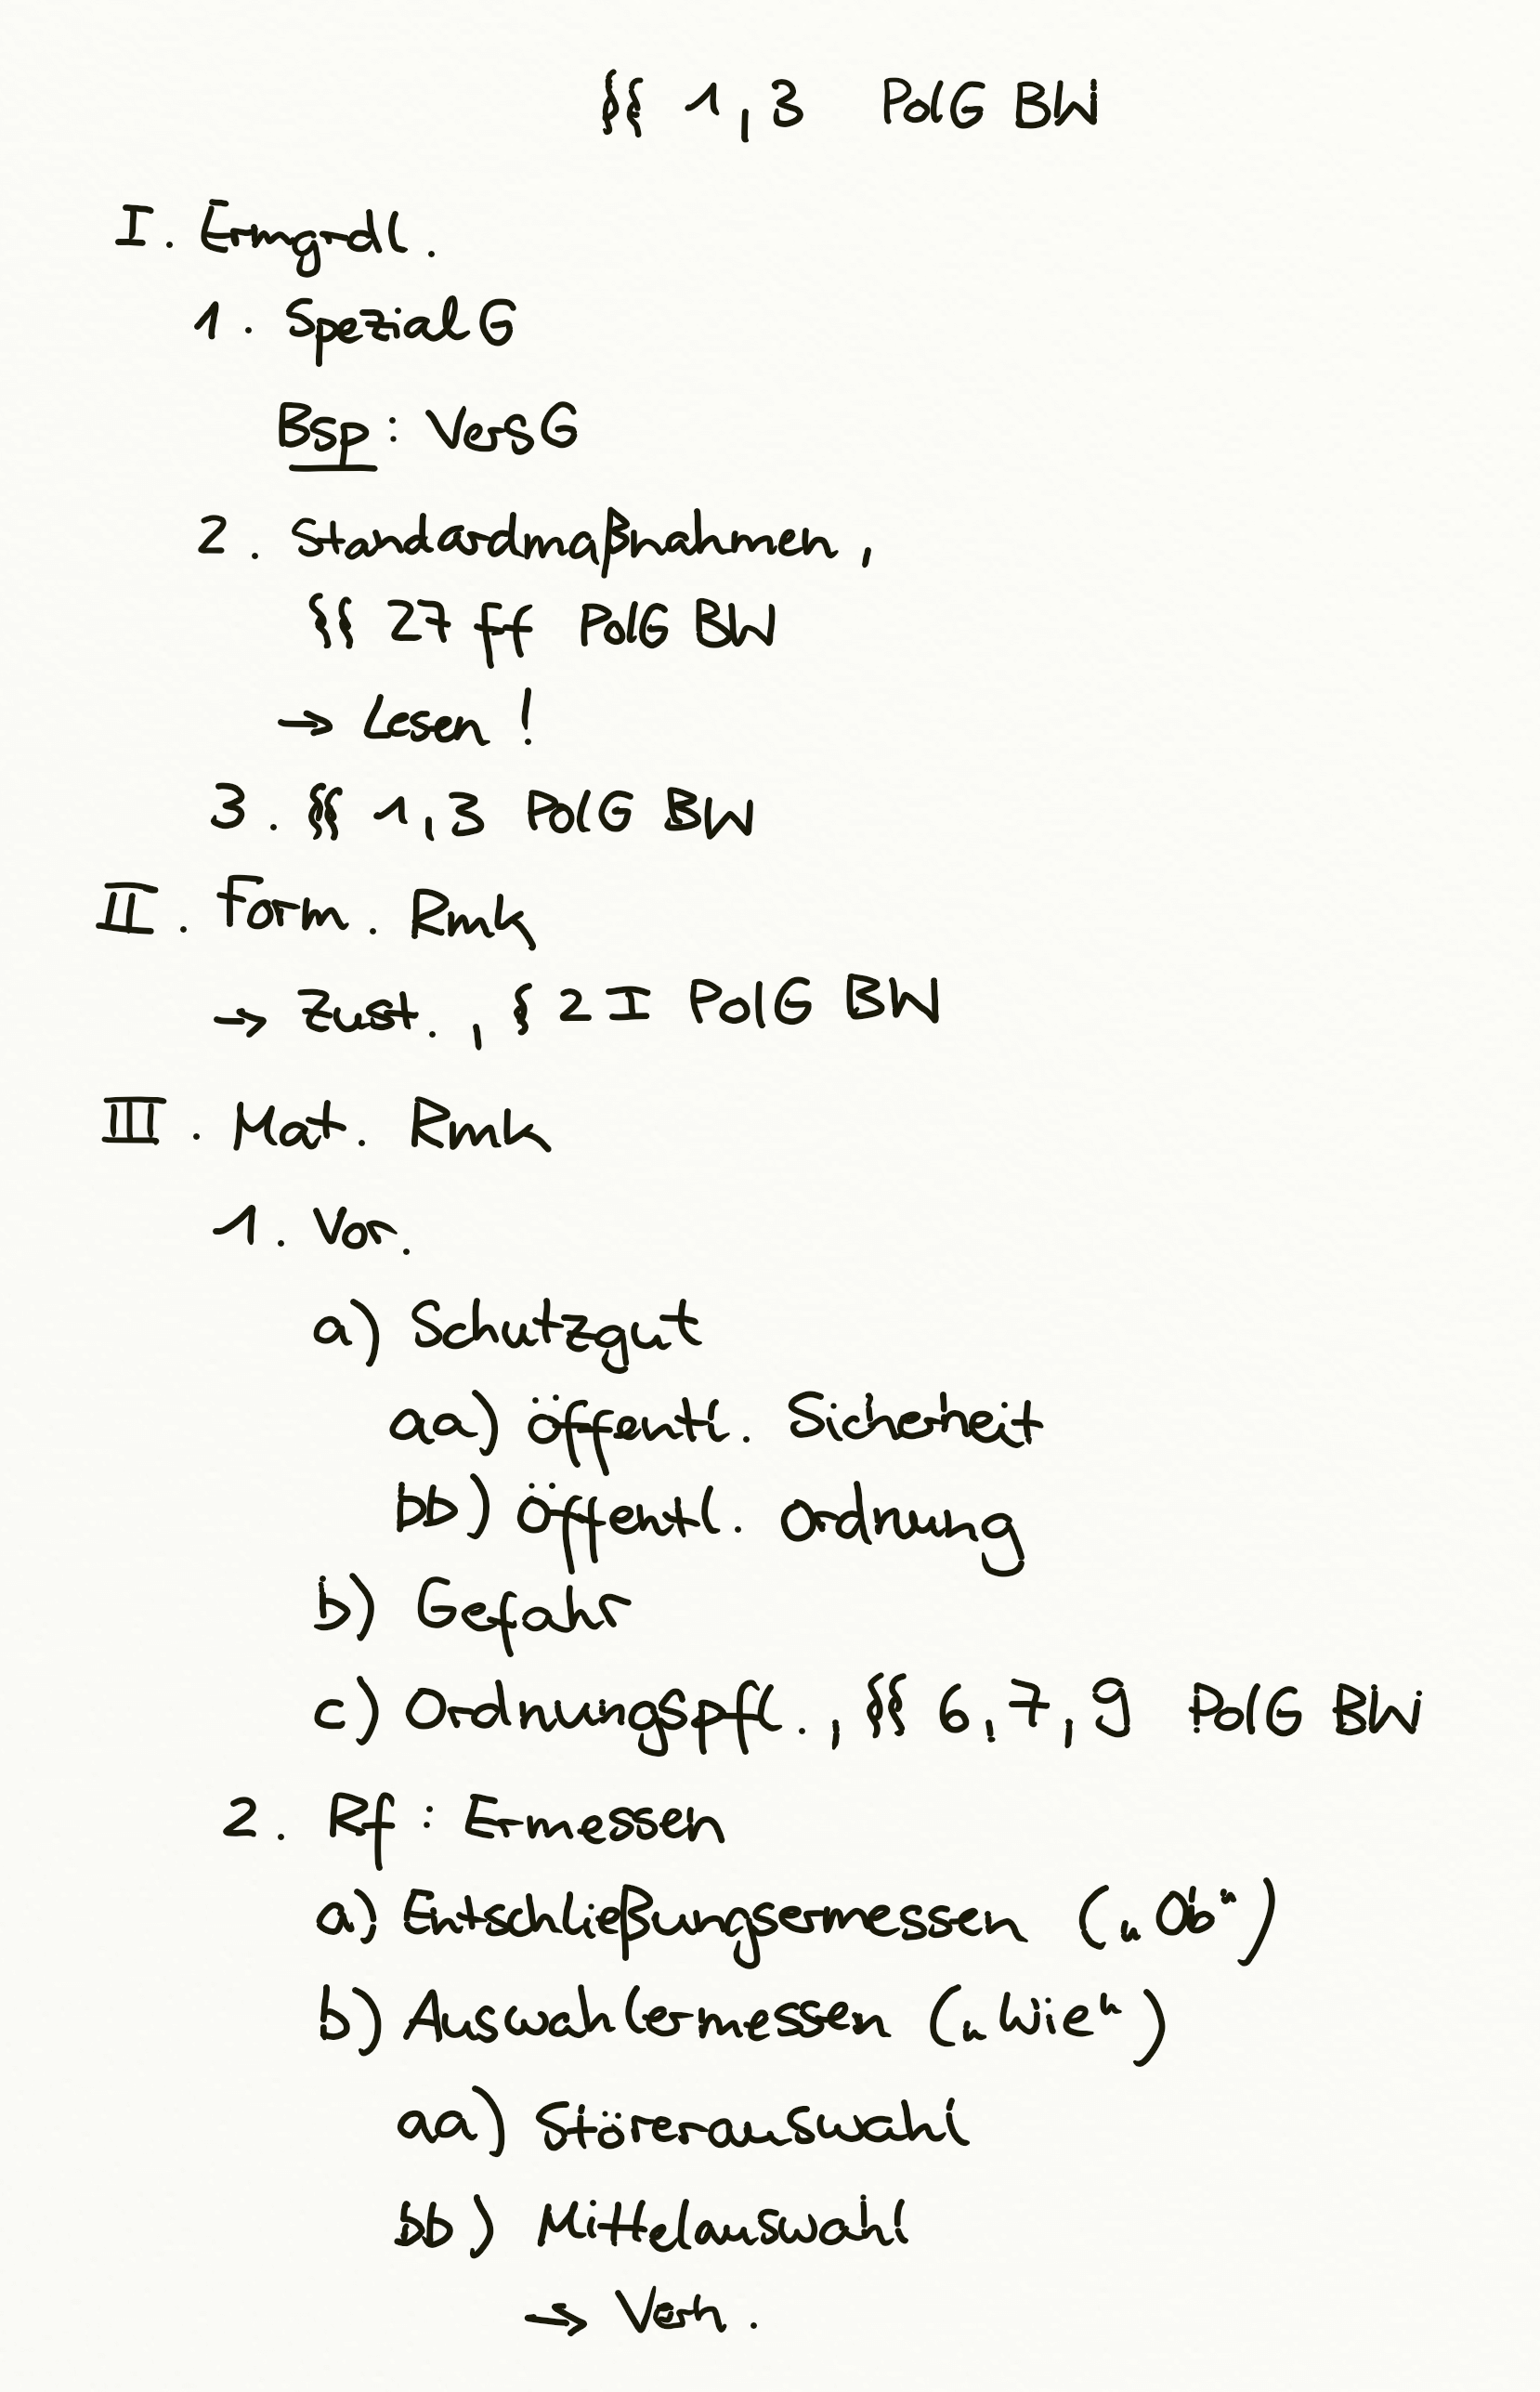 §§ 1, 3 PolG BW
I. Ermgrdl.
1. SpezialG
Bsp: VersG
2. Standardmaßnahmen,
§§ 27 ff PolG BW
→ Lesen!
3. §§ 1, 3 PolG BW
II. Form. Rmk
→ Zust., § 2 I PolG BW
III. Mat. Rmk
1. Vor.
a) Schutzgut
aa) öffentl. Sicherheit
bb) öffentl. Ordnung
b) Gefahr
c) Ordnungspfl., §§ 6, 7, 9 PolG BW
2. Rf: Ermessen
a) Entschließungsermessen („Ob“)
b) Auswahlermessen („Wie“)
aa) Störerauswahl
bb) Mittelauswahl
→ Verh.